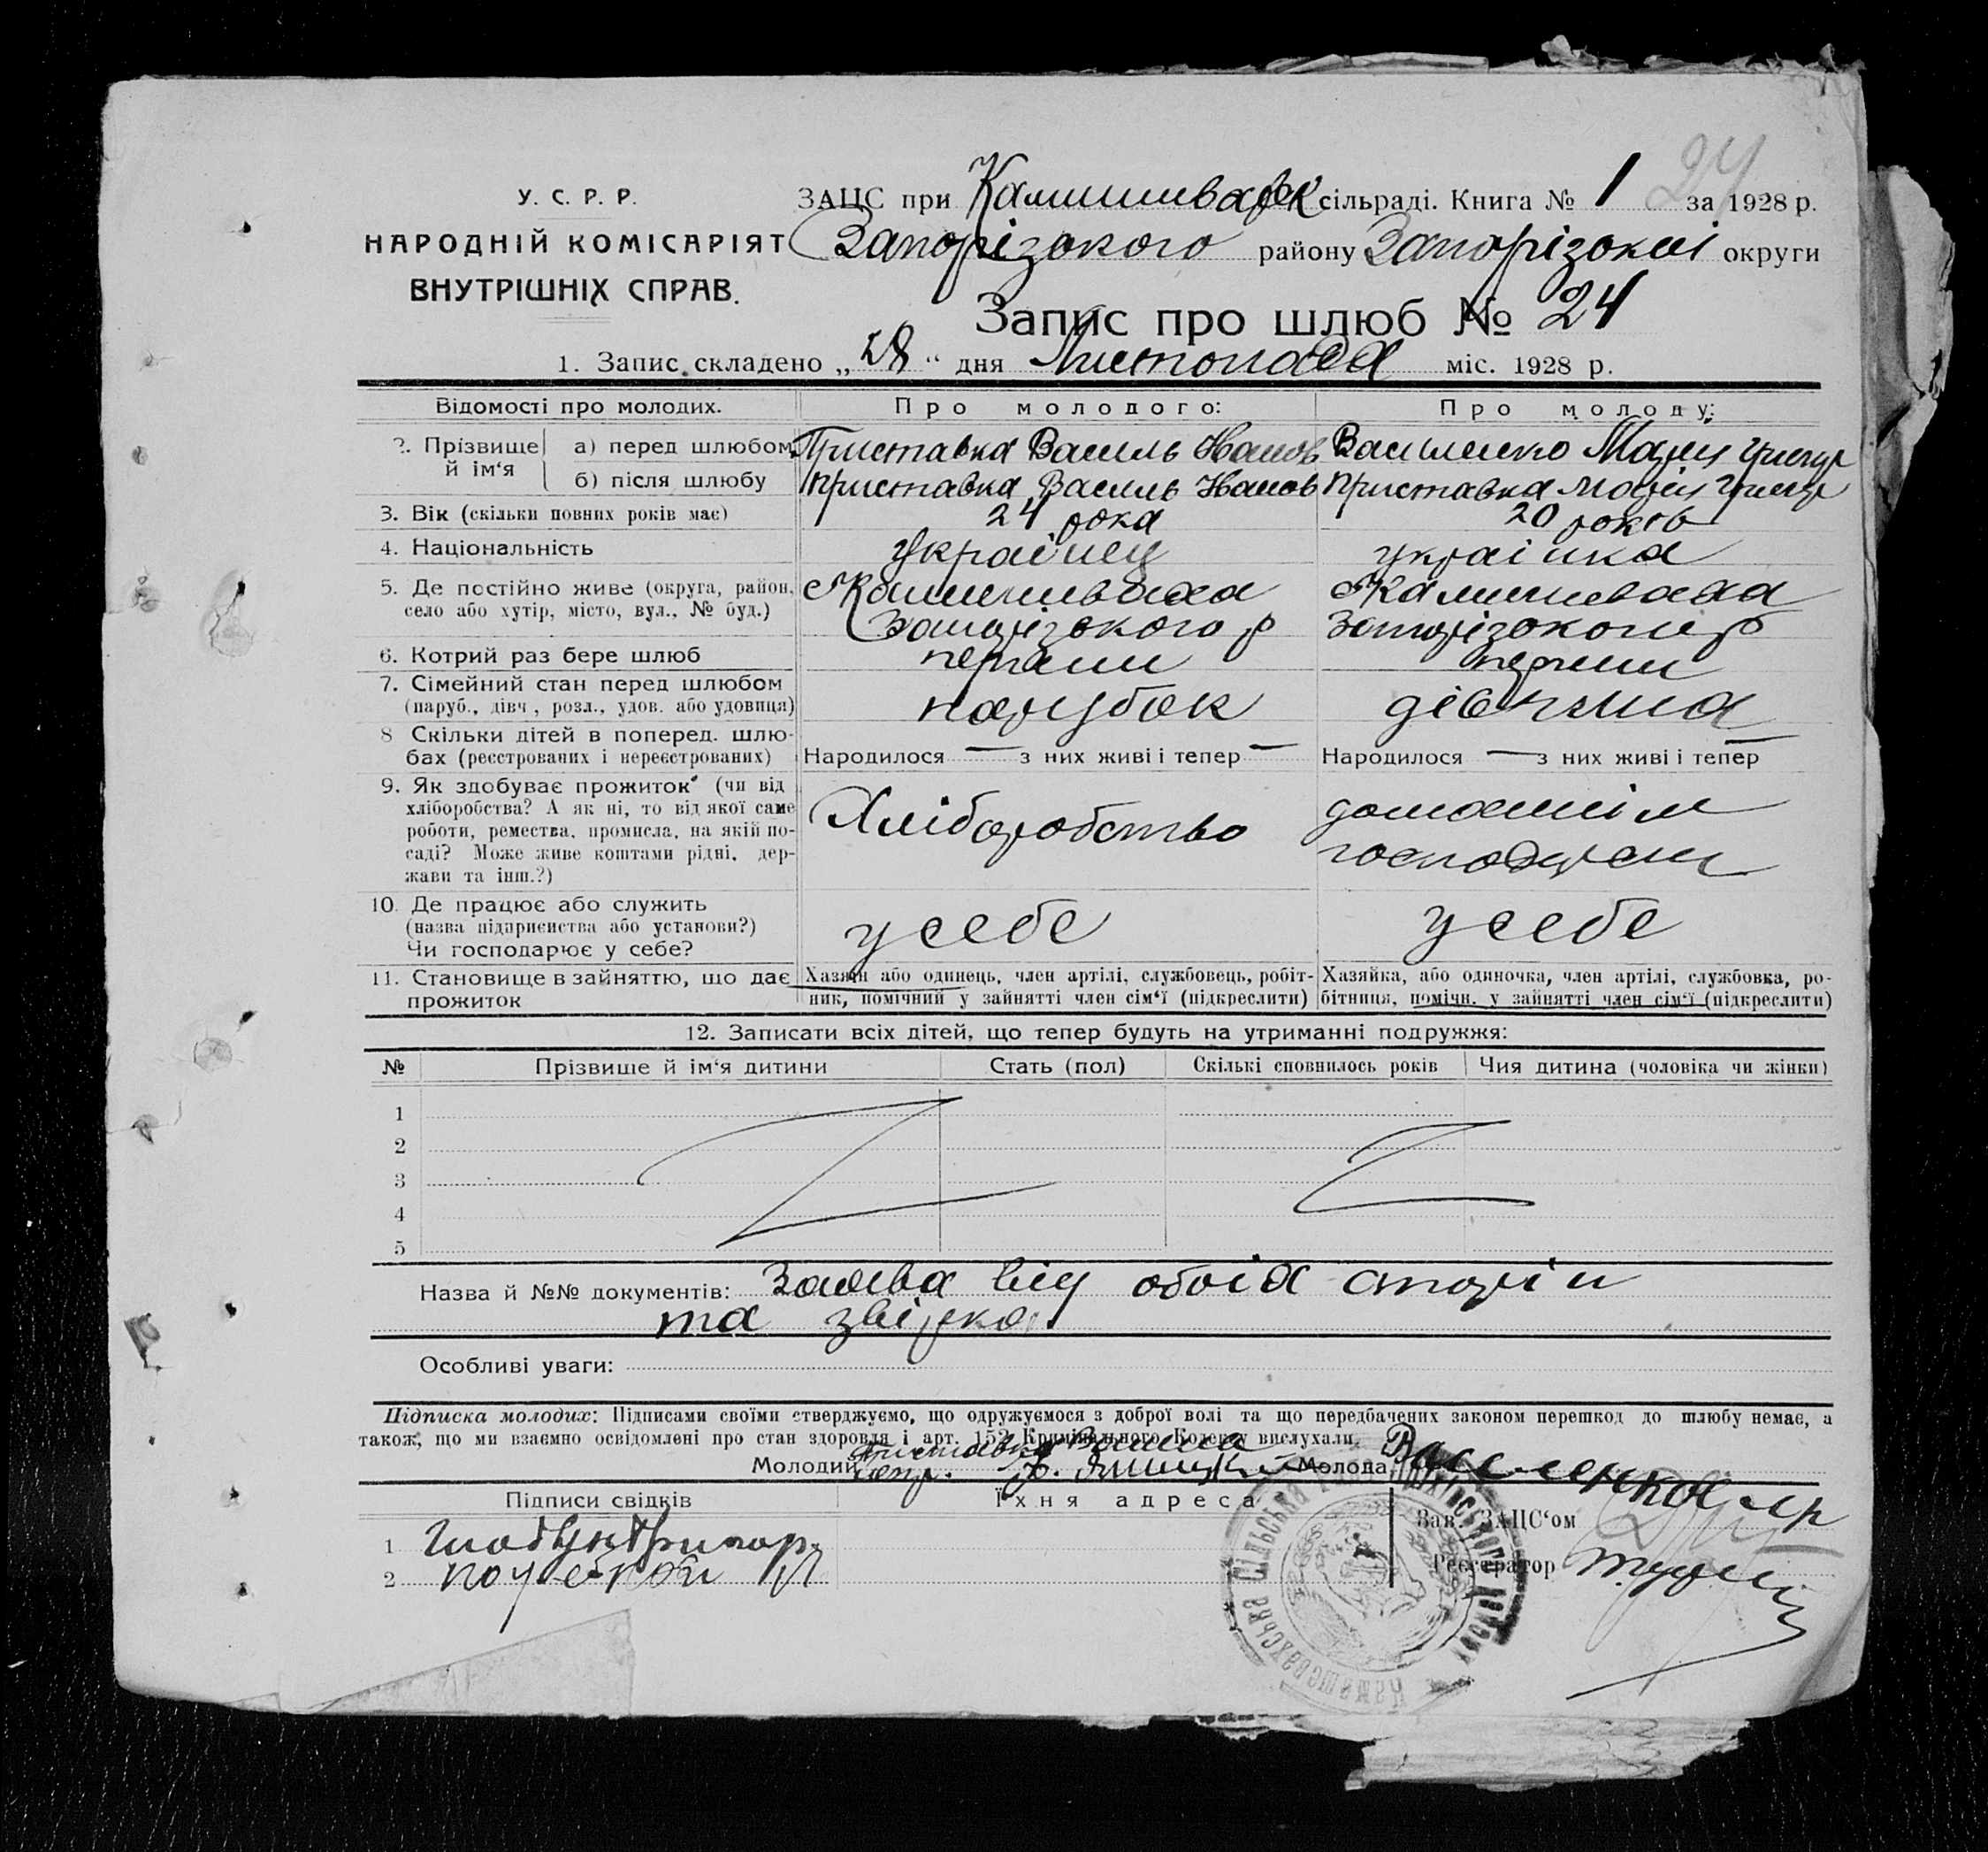 24
У. С. Р. Р.
НАРОДНІЙ КОМІСАРІЯТ
ВНУТРІШНІХ СПРАВ.
ЗАЦС при Камишивахск сільраді. Книга № 1 за 1928 р.
Запорізького району Запорізької округи
Запис про шлюб № 24
1. Запис складено „28“ дня Листопада міс. 1928 р.
Відомості про молодих. Про молодого: Про молоду:
2. Прізвище й ім‘я
а) перед шлюбом Приставка Василь Иванов Василенко Марія Григор
б) після шлюбу Приставка Василь Иванов Приставка Марія Григор
3. Вік (скільки повних років має) 24 рока 20 років
4. Національність українец українка
5. Де постійно живе (округа, район, Камишиваха Камишиваха
село або хутір, місто, вул., № буд.) Запорізького р Запорізького р
6. Котрий раз бере шлюб перший перший
7. Сімейний стан перед шлюбом
(паруб., дівч., розл., удов. або удовиця) парубок дівчина
8 Скільки дітей в поперед. шлю-
бах (реєстрованих і нереєстрованих) Народилося — з них живі і тепер — Народилося — з них живі і тепер —
9. Як здобуває прожиток (чи від
хліборобства? А як ні, то від якої саме Хліборобство домашнім
роботи, ремества, промисла, на якій по-
саді? Може живе коштами рідні, дер- господарст
жави та інш.?)
10. Де працює або служить
(назва підприємства або установи?) у себе у себе
Чи господарює у себе?
11. Становище в зайняттю, що дає Хазяїн або одинець, член артілі, службовець, робіт- Хазяйка, або одиночка, член артілі, службовка, ро-
прожиток ник, помічний у зайнятті член сім‘ї (підкреслити) бітниця, помічн. у зайнятті член сім‘ї (підкреслити)
12. Записати всіх дітей, що тепер будуть на утриманні подружжя:
№ Прізвище й ім‘я дитини Стать (пол) Скількі сповнилось років Чия дитина (чоловіка чи жінки)
1
2
3
4
5
Назва й №№ документів: Заява від обоїх сторін
та звідка
Особливі уваги:
Підписка молодих: Підписами своїми стверджуємо, що одружуємося з доброї волі та що передбачених законом перешкод до шлюбу немає, а
також, що ми взаємно освідомлені про стан здоровля і арт. 152 Кримінального Кодексу вислухали.
Приставка Василя
Молодий Молода Василенкова мр
Підписи свідків Їхня адреса
Зав. ЗАЦС‘ом
1
2
Реєстратор
Камишевахська Сільська